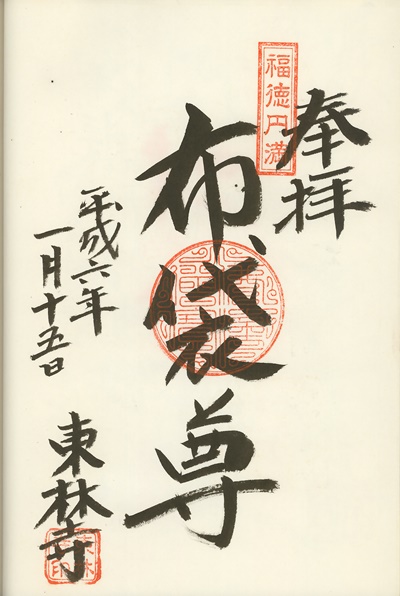 奉拝
福徳円満
布袋尊
平成六年
一月十五日
東林寺